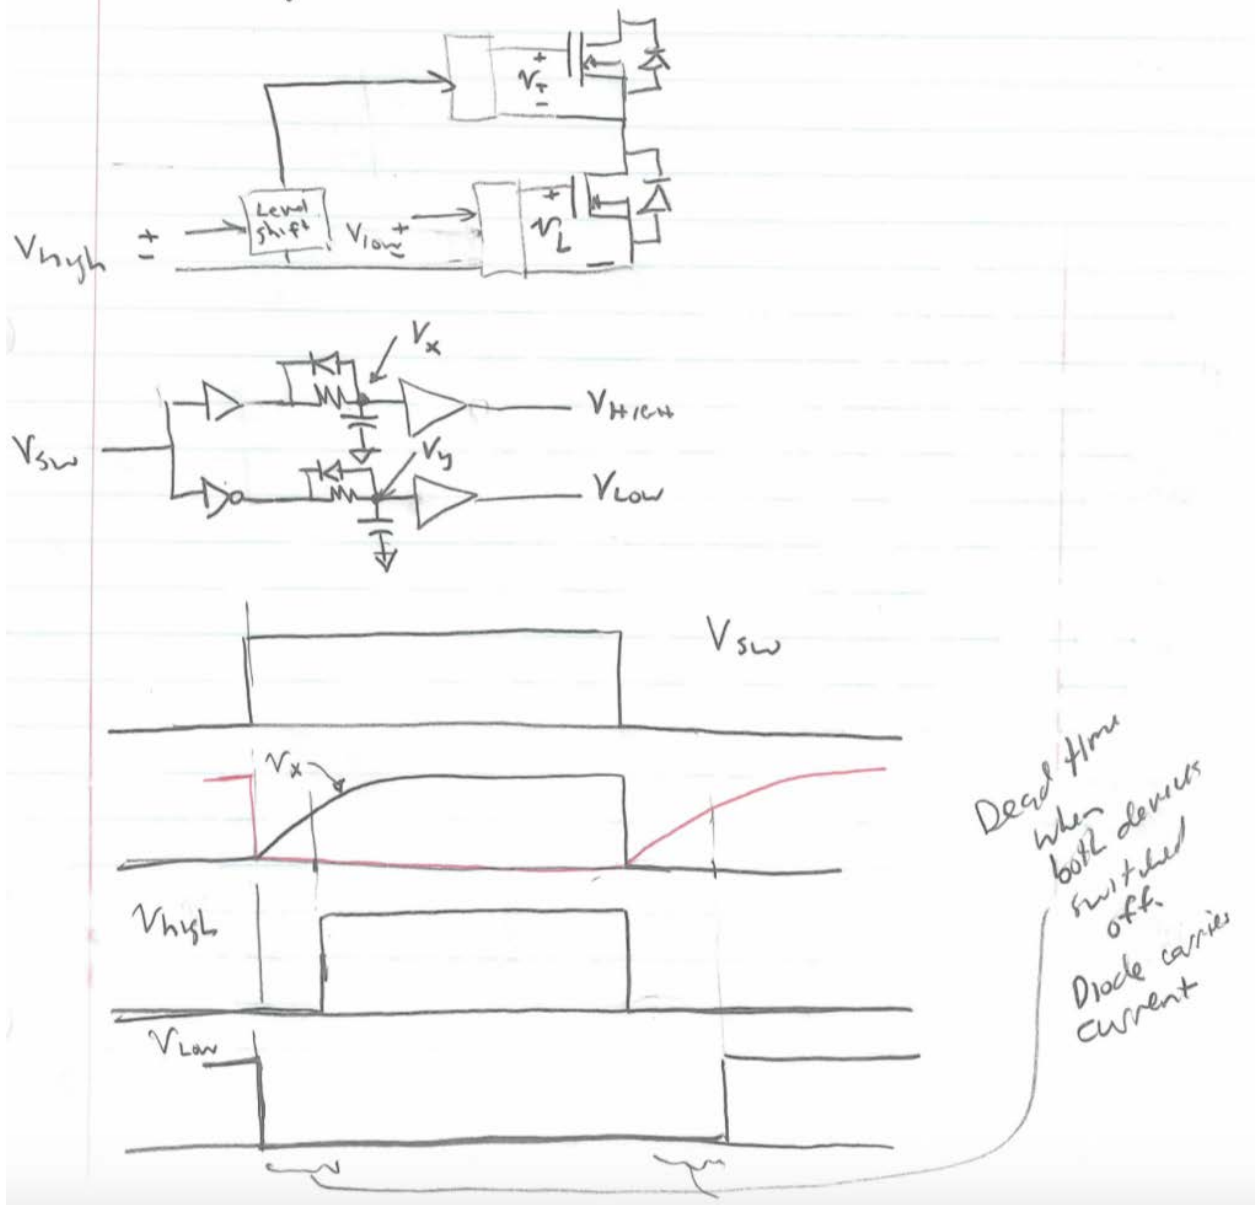 +
V_T
-
Level
shift
V_high + -
V_low + -
+
V_L
-
V_x
V_HIGH
V_SW
V_y
V_LOW
V_SW
V_x
V_high
V_Low
Dead time
when
both devices
switched
off.
Diode carries
current